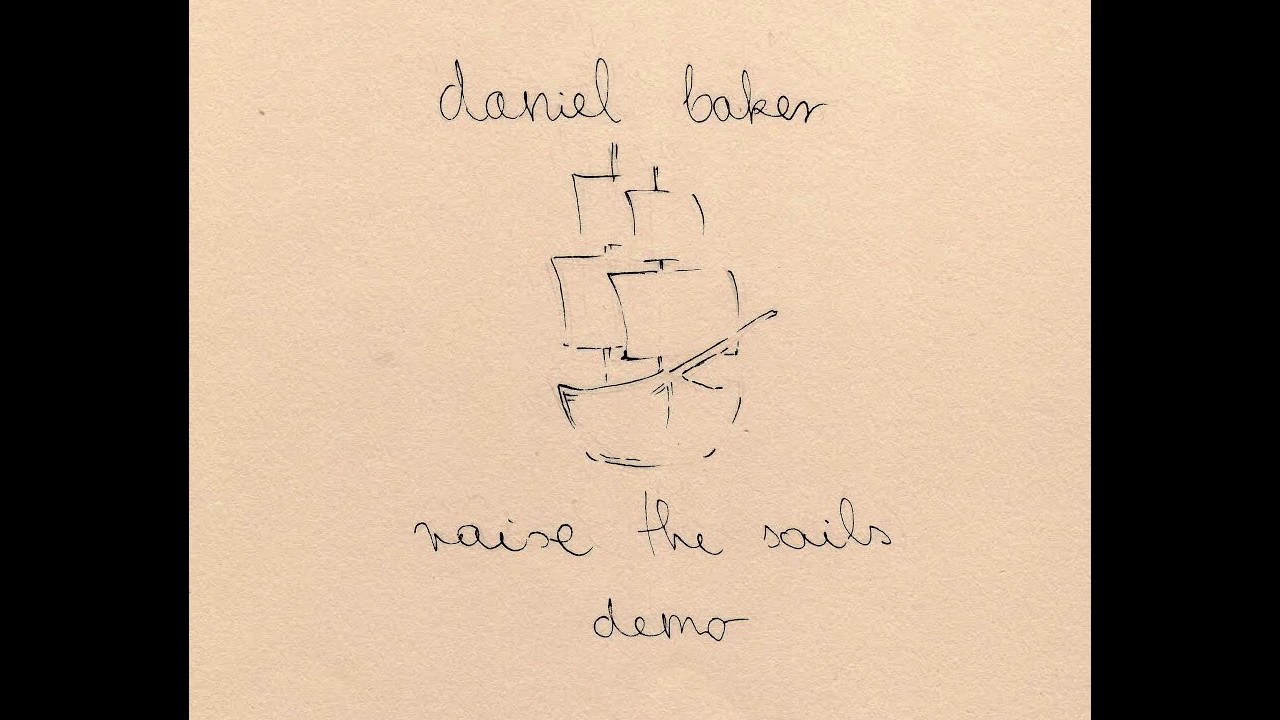 daniel baker
raise the sails
demo